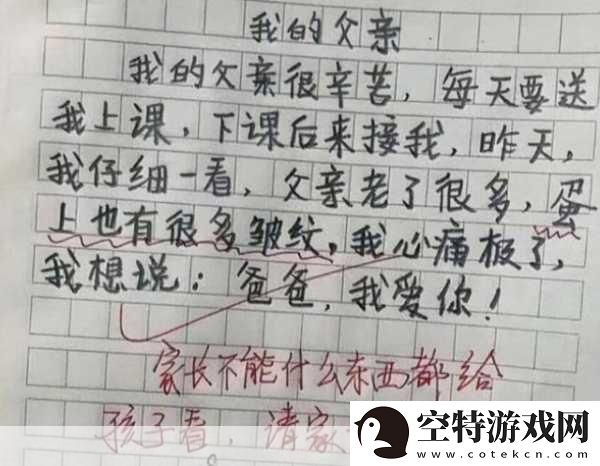 我的父亲
我的父亲很辛苦，每天要送
我上课，下课后来接我，昨天，
我仔细一看，父亲老了很多，蛋
上也有很多皱纹，我心痛极了，
我想说：爸爸，我爱你！
家长不能什么东西都给
孩子看，请家
空特游戏网
www.cotekcn.com